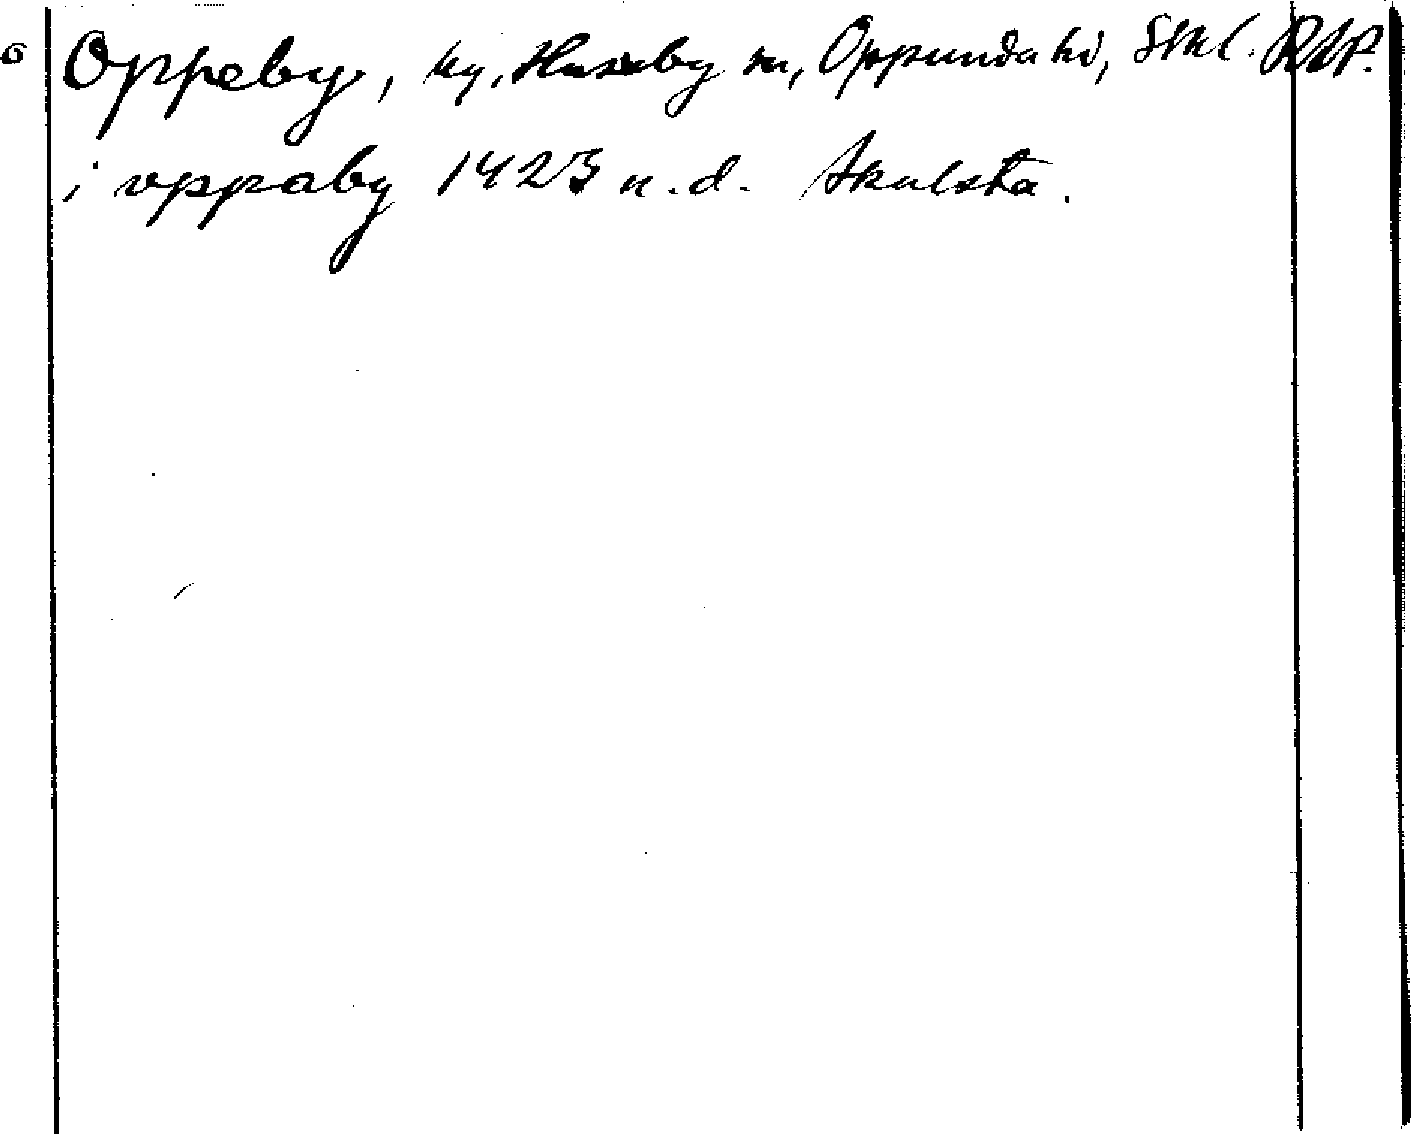 Oppeby, by, Husby sn, Oppunda hd, Sthl. RAP.
i vppaby 1423 u.d. Skulsta.